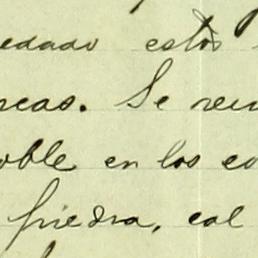 edado estos
cas. Se reu
oble en los co
piedra, cal